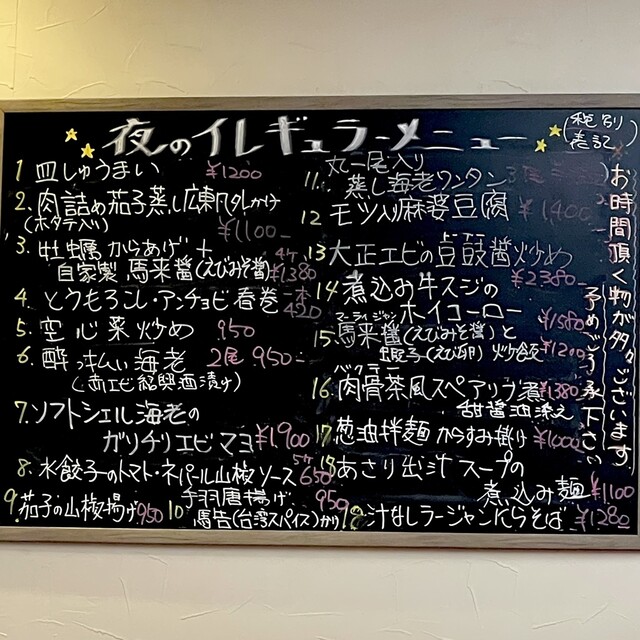 夜のイレギュラーメニュー
(税別
表記)
1 皿しゅうまい ¥1200
2. 肉詰め茄子蒸し広東風タレかけ
(ホタテ入り) ¥1100-
3. 牡蠣からあげ+ 4ケ
自家製 馬来醤(えびみそ醤) ¥1380
4. とうもろこし・アンチョビ春巻 一本
420
5. 空心菜炒め 950
6. 酔っ払い海老 2尾 950-
(赤エビ 紹興酒漬け)
7. ソフトシェル海老の
ガリチリエビマヨ ¥1900
8. 水餃子のトマト・ネパール山椒ソース 5ケ
650
9. 茄子の山椒揚げ 950
10 手羽唐揚げ 950
馬告(台湾スパイス)かけ
11. 丸一尾入り
蒸し海老ワンタン
12 モツ入り麻婆豆腐 ¥1400
13 大正エビの豆鼓醤炒め
¥2380-
14 煮込み牛スジの
ホイコーロー ¥1580
15. マーライジャン
馬来醤(えびみそ醤)と
蝦子(えび卵)炒飯 ¥1200
16. バクテー
肉骨茶風スペアリブ煮 ¥1380
甜醤油添え
17 葱油拌麺 からすみ掛け ¥1000
18 あさり出汁スープの
煮込み麺 ¥1100
19 汁なしラージャンにらそば ¥1280
お時間頂く物が多くございます
予めご了承下さい